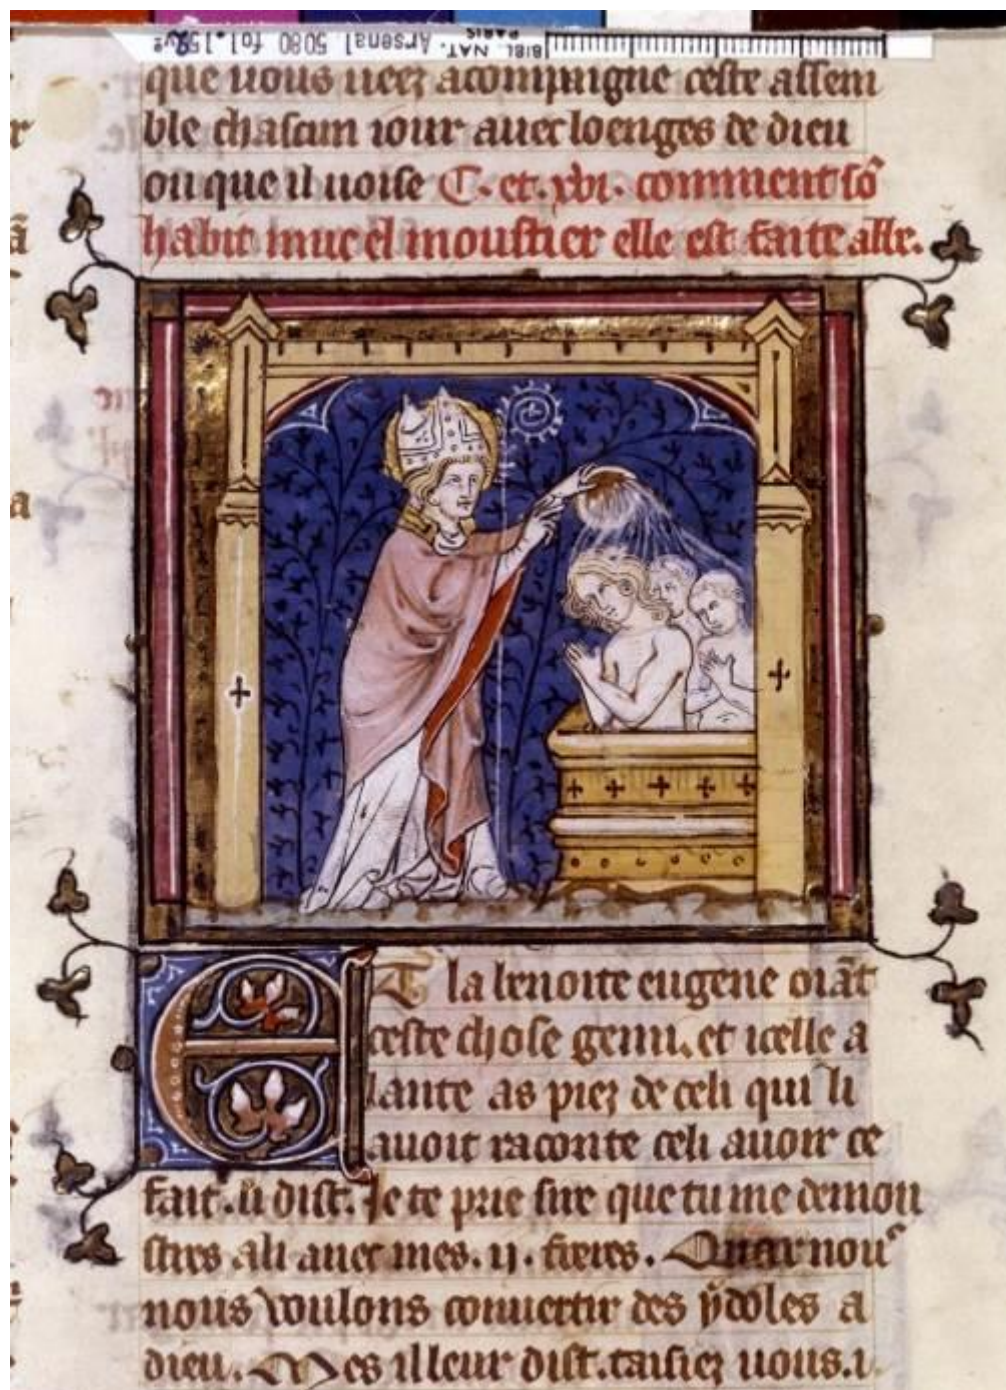 BIBL. NAT. Arsenal 5080 fol. 152vº
PARIS
que uous ueez acompaigne ceste assem
ble chascun iour auec loenges de dieu
ou que il uoise C. et. xvi. comment sō
habit mue el moustier elle est faite abbe.
ET la benoite eugene oiāt
ceste chose gemi. et icelle a
lante as piez de celi qui li
auoit raconte celi auoir ce
fait. li dist. Je te prie sire que tu me demon
stres a li auec mes .ij. freres. Quar nou
nous voulons conuertir des ydoles a
dieu. Mes il leur dist. taisiez uous. i